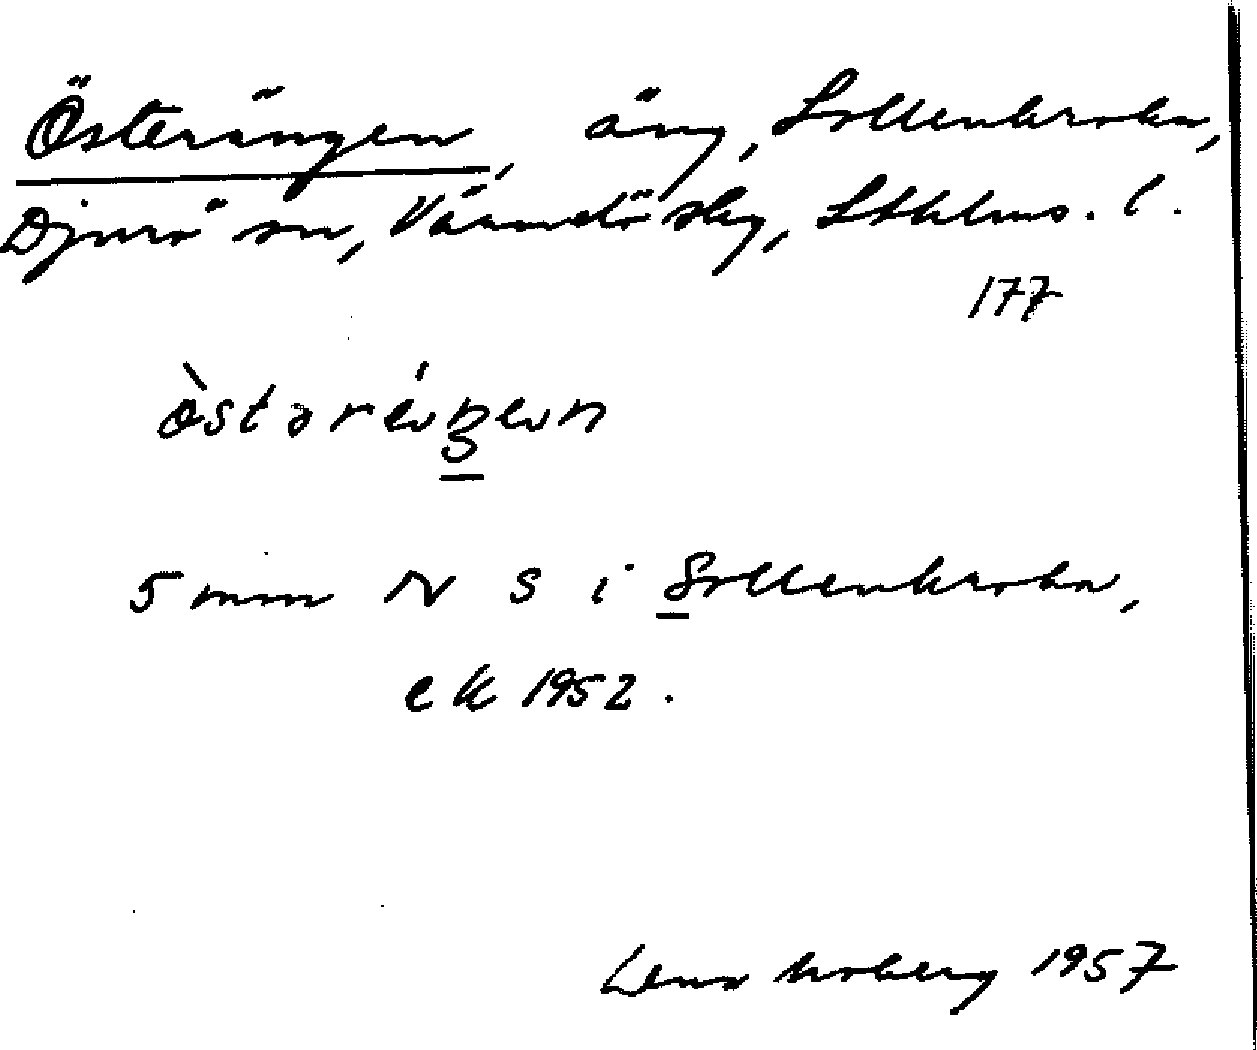 Österängen, äng, Sollenkroka,
Djurö sn, Värmdö skg, Sthlms. l.
177
5 mm N S i Sollenkroka,
ek 1952.
Lena Moberg 1957